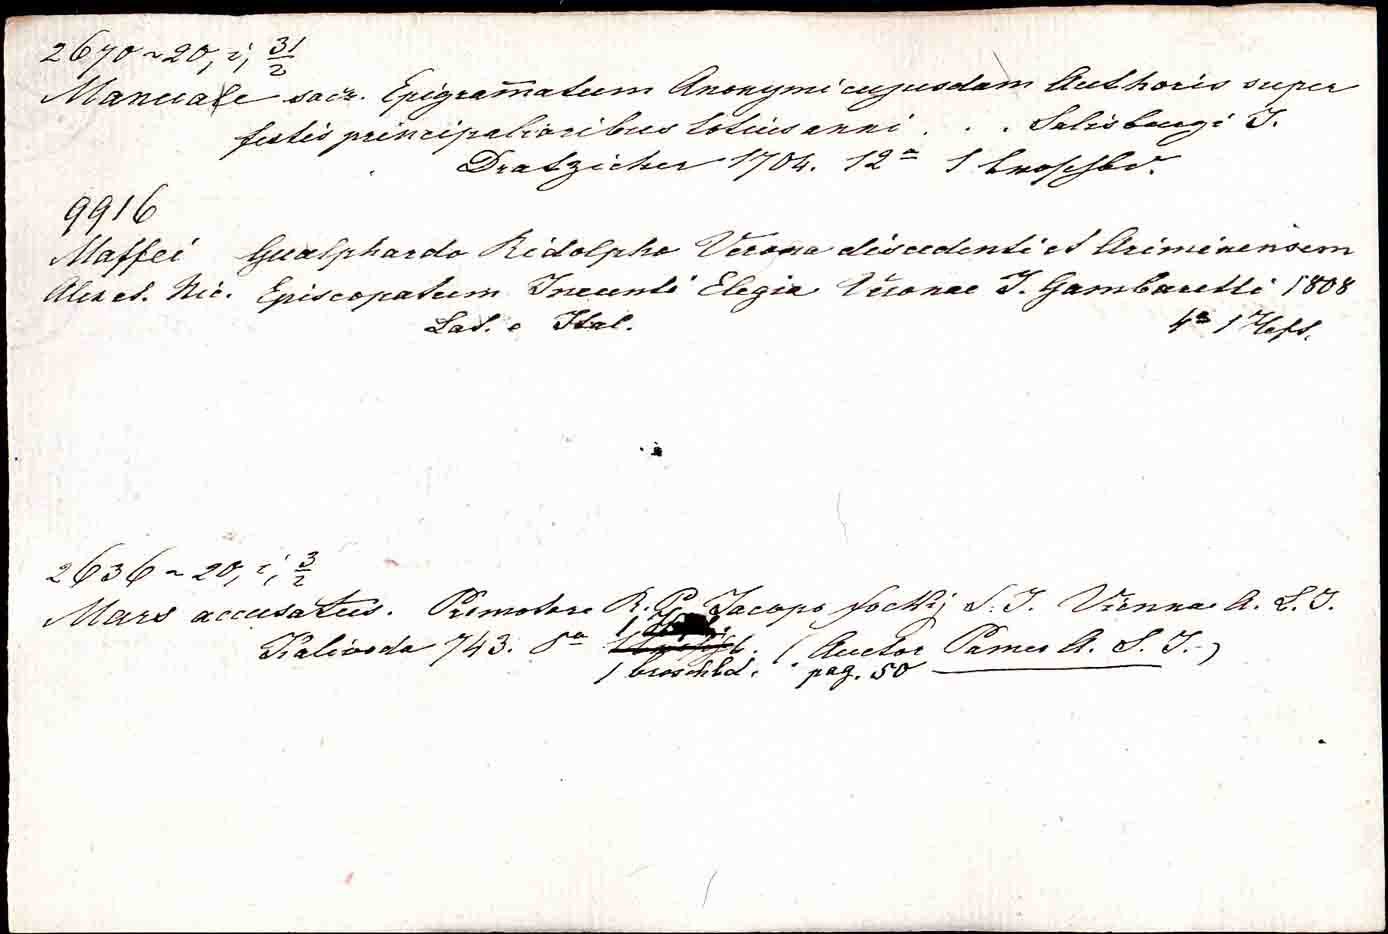 2670 ~ 20, i, 31/2
Manuale sacr. Epigram̅atum Anonymi cujusdam Authoris super
festis principalioribus totius anni . . . Salisburgi J.
Dratzieher 1704. 12ª 1 broschbd.
9916
Maffei Gualphardo Ridolpho Verona discedenti et Ariminensem
Alex et. Nic. Episcopatum Ineunti Elegia Veronae J. Gambaretti 1808
Lat. e Ital. 4ª 1 Heft.
2636 ~ 20, i, 3/2
Mars accusatus. Promotore R. P. Jacopo focky S. J. Viennae A. L. J.
Kalivoda 743. 8ª (Auctor Pamer A. S. J.)
1 broschbd. pag. 50